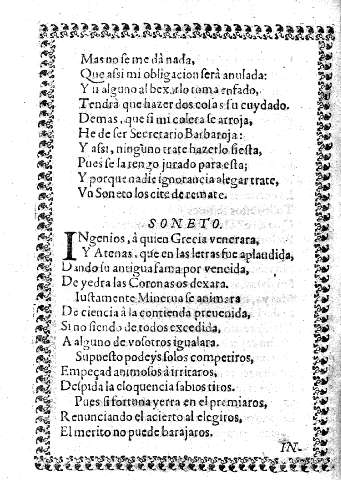 Mas no se me dà nada,
Que assi mi obligacion serà anulada:
Y si alguno al bexarlo toma enfado,
Tendrà que hazer dos cosas su cuydado.
Demas, que si mi colera se arroja,
He de ser Secretario Barbaroja:
Y assi, ninguno trate hazerlo fiesta,
Pues se la tengo jurado para esta;
Y porque nadie ignorancia alegar trate,
Vn Soneto los cite de remate.
SONETO.
INgenios, à quien Grecia venerara,
Y Atenas, que en las letras fue aplaudida,
Dando su antigua fama por vencida,
De yedra las Coronas os dexara.
Iustamente Minerua se animara
De ciencia à la contienda preuenida,
Si no siendo de todos excedida,
A alguno de vosotros igualara.
Supuesto podeys solos competiros,
Empeçad animosos à irritaros,
Despida la eloquencia sabios tiros.
Pues si fortuna yerra en el premiaros,
Renunciando el acierto al elegiros,
El merito no puede barajaros.
IN-